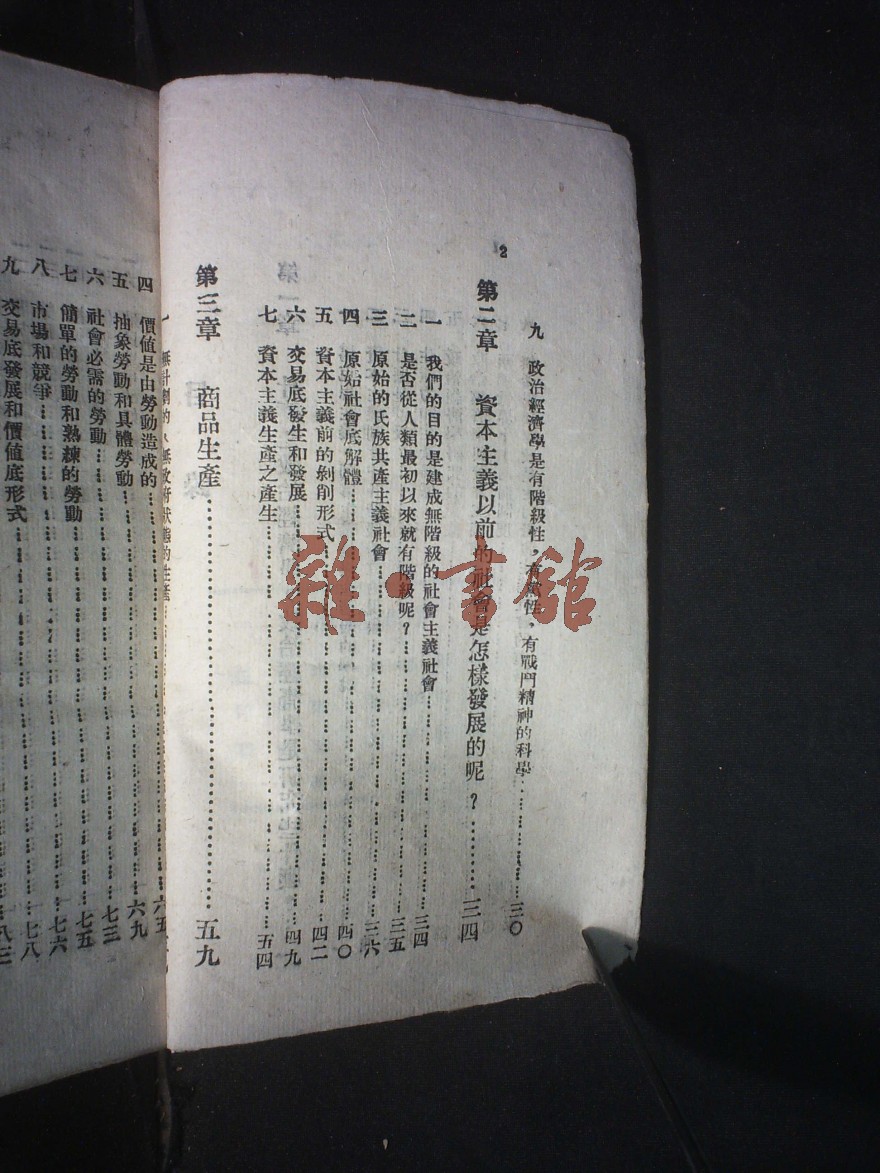 2
九 政治經濟學是有階級性，有黨性，有戰鬥精神的科學……三〇
第二章 資本主義以前的社會是怎樣發展的呢？……三四
一 我們的目的是建成無階級的社會主義社會……三四
二 是否從人類最初以來就有階級呢？……三五
三 原始的氏族共產主義社會……三六
四 原始社會底解體……四〇
五 資本主義前的剝削形式……四二
六 交易底發生和發展……四九
七 資本主義生產之產生……五四
第三章 商品生產……五九
一 無計劃的、無政府狀態的生產……
六五
四 價値是由勞動造成的……六九
五 抽象勞動和具體勞動……七三
六 社會必需的勞動……七五
七 簡單的勞動和熟練的勞動……七六
八 市場和競爭……七八
九 交易底發展和價値底形式……八三
雜·書館